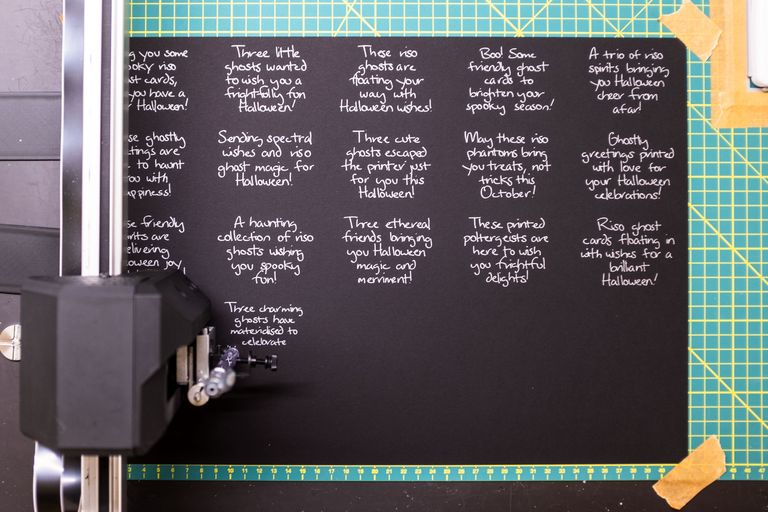 you some
riso
cards,
you have a
Halloween!
Three little
ghosts wanted
to wish you a
frightfully fun
Halloween!
These riso
ghosts are
floating your
way with
Halloween wishes!
Boo! Some
friendly ghost
cards to
brighten your
spooky season!
A trio of riso
spirits bringing
you Halloween
cheer from
afar!
ghostly
are
to haunt
with
Sending spectral
wishes and riso
ghost magic for
Halloween!
Three cute
ghosts escaped
the printer just
for you this
Halloween!
May these riso
phantoms bring
you treats, not
tricks this
October!
Ghostly
greetings printed
with love for
your Halloween
celebrations!
friendly
are
joy!
A haunting
collection of riso
ghosts wishing
you spooky
fun!
Three ethereal
friends bringing
you Halloween
magic and
merriment!
These printed
poltergeists are
here to wish
you frightful
delights!
Riso ghost
cards floating in
with wishes for a
brilliant
Halloween!
Three charming
ghosts have
materialised to
celebrate